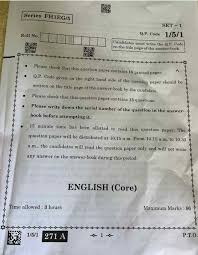 Series FH1EG/5
SET – 1
Roll No.
Q.P. Code 1/5/1
Candidates must write the Q.P. Code
on the title page of the answer-book.
Please check that this question paper contains printed pages.
Q.P. Code given on the right hand side of the question paper should be
written on the title page of the answer-book by the candidate.
Please check that this question paper contains questions.
Please write down the serial number of the question in the answer-
book before attempting it.
15 minute time has been allotted to read this question paper. The
question paper will be distributed at 10.15 a.m. From 10.15 a.m. to 10.30
a.m., the candidates will read the question paper only and will not write
any answer on the answer-book during this period.
ENGLISH (Core)
Time allowed : 3 hours
Maximum Marks : 80
1/5/1
271 A
1
P.T.O